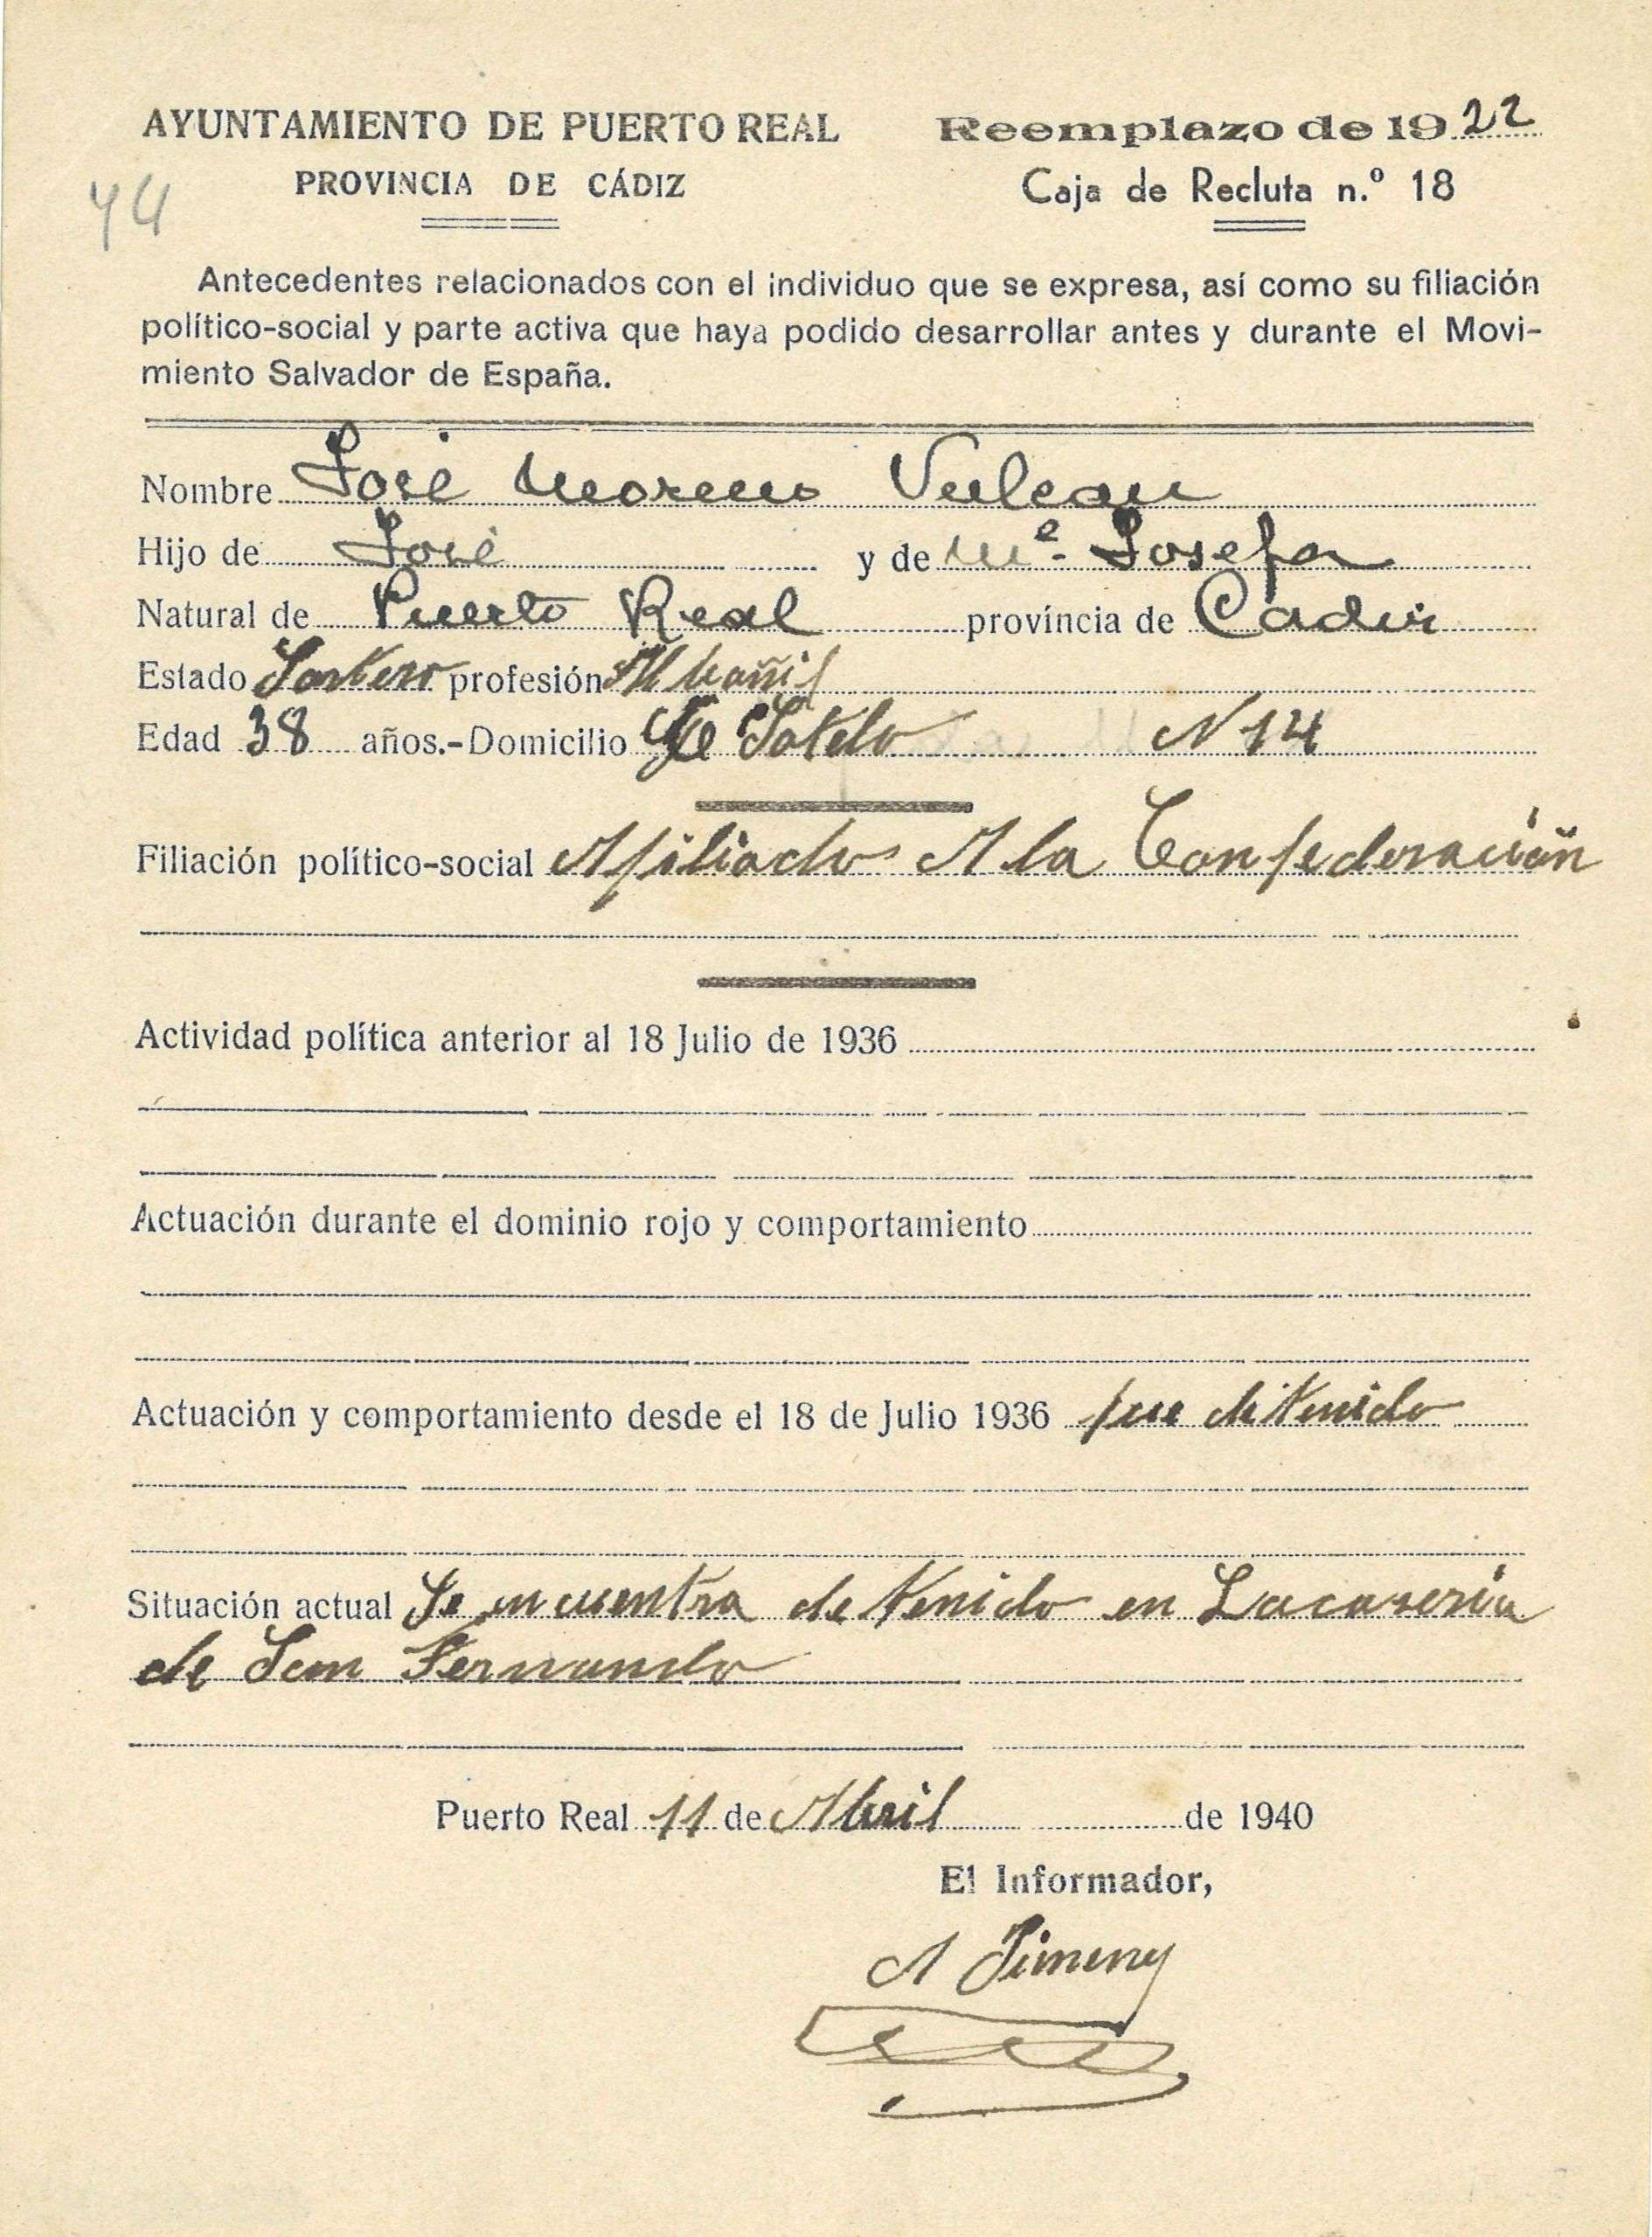 AYUNTAMIENTO DE PUERTO REAL
PROVINCIA DE CÁDIZ
Reemplazo de 1922
Caja de Recluta n.º 18
44
Antecedentes relacionados con el individuo que se expresa, así como su filiación
político-social y parte activa que haya podido desarrollar antes y durante el Movi-
miento Salvador de España.
Nombre José Moreno Vulean
Hijo de José y de Mª. Josefa
Natural de Puerto Real província de Cadiz
Estado Soltero profesión Albañil
Edad 38 años.-Domicilio C Sotelo N 14
Filiación político-social Afiliado A la Confederación
Actividad política anterior al 18 Julio de 1936
Actuación durante el dominio rojo y comportamiento
Actuación y comportamiento desde el 18 de Julio 1936 fue ditenido
Situación actual Se encuentra detenido en Lacaseria
de San Fernando
Puerto Real 11 de Abril de 1940
El Informador,
A Jimeny